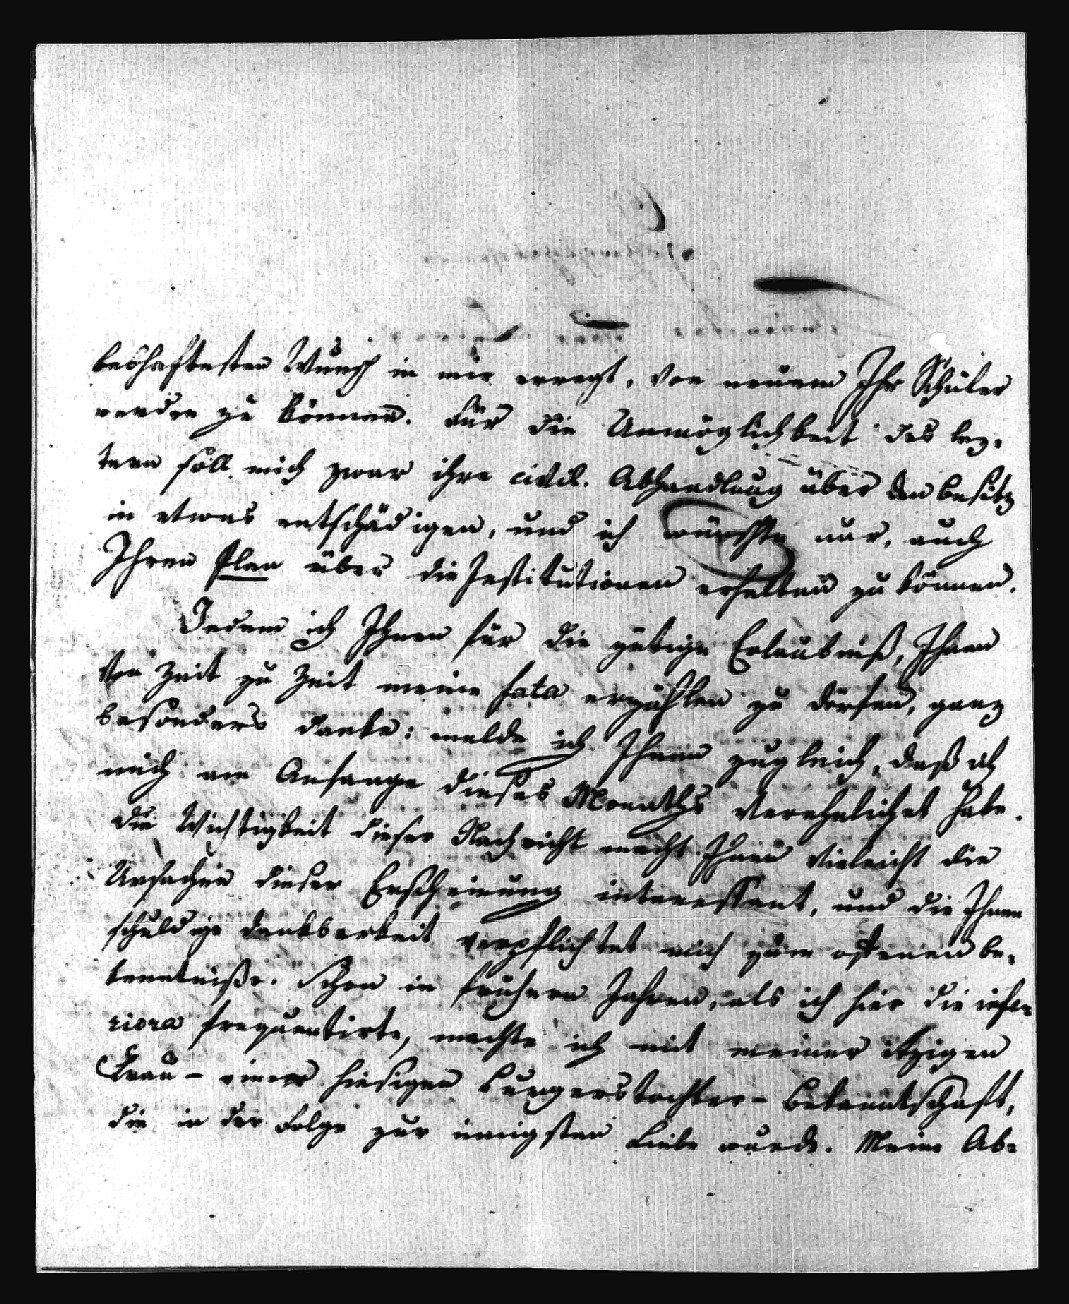 lebhaftesten Wunsch in mir erregt, von neuem Ihr Schüler
werden zu können. Für die Unmöglichkeit des lez-
tern soll mich zwar ihre civil. Abhandlung über den Besitz
in etwas entschädigen, und ich wünschte nur, auch
Ihren Plan über die Institutionen erhalten zu können.
Indem ich Ihnen für die gütige Erlaubniß, Ihnen
von Zeit zu Zeit meine fata erzählen zu dörfen, ganz
besonders danke: melde ich Ihnen zugleich, daß ich
mich am Anfange dieses Monaths verehelichet habe.
Die Wichtigkeit dieser Nachricht macht Ihnen vieleicht die
Ursachen dieser Erscheinung interessant, und die Ihnen
schuldige Dankbarkeit verpflichtet mich zum offenen Be-
kenntniße. Schon in frühern Jahren, als ich hier die infe-
riora frequentirte, machte ich mit meiner itzigen
Frau - einer hiesigen Burgerstochter - Bekanntschaft,
die in der Folge zur innigsten Liebe wurde. Meine Ab-